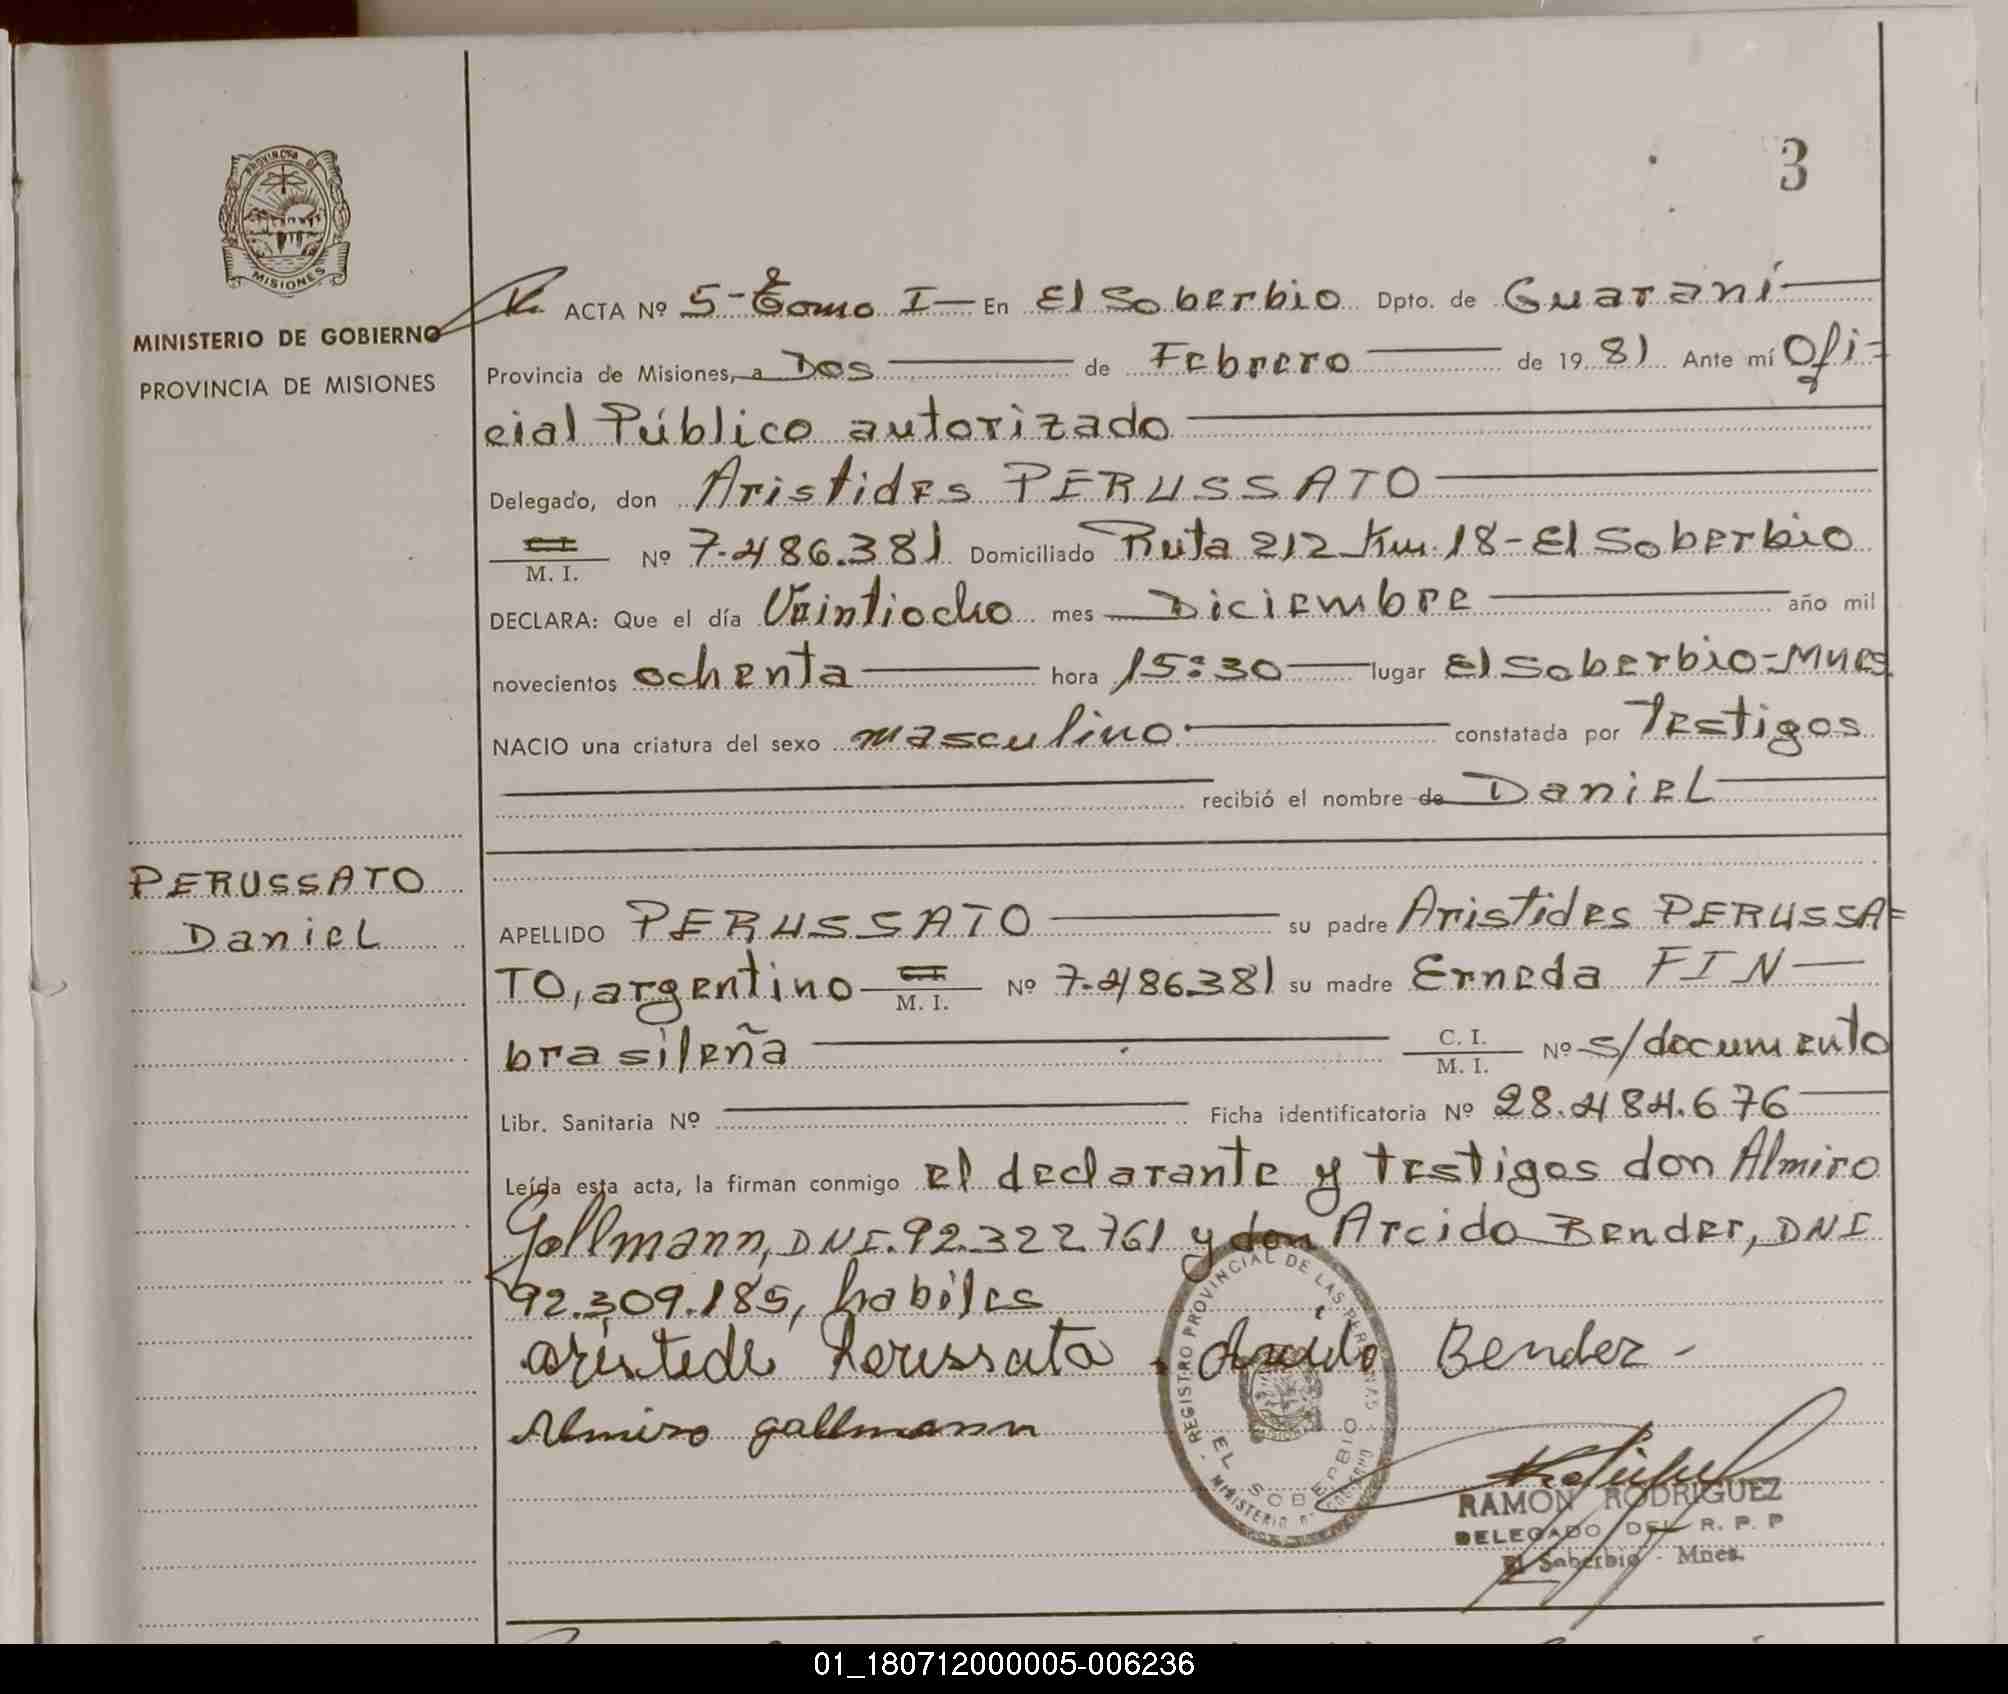 3
PROVINCIA DE
MISIONES
MINISTERIO DE GOBIERNO
PROVINCIA DE MISIONES
PERUSSATO
Daniel
ACTA Nº 5-Tomo I- En El Soberbio Dpto. de Guaraní
Provincia de Misiones, a Dos de Febrero de 19 81 Ante mí Ofi-
cial Público autorizado
Delegado, don Aristides PERUSSATO
C I M. I. Nº 7.486.381 Domiciliado Ruta 212 Km. 18-El Soberbio
DECLARA: Que el día Veintiocho mes Diciembre año mil
novecientos ochenta hora 15:30 lugar El Soberbio-Mnes
NACIO una criatura del sexo masculino constatada por Testigos
recibió el nombre de Daniel
APELLIDO PERUSSATO su padre Aristides PERUSSA=
TO, argentino C I M. I. Nº 7.486.381 su madre Erneda FIN
brasileña C. I. M. I. Nº s/documento
Libr. Sanitaria Nº Ficha identificatoria Nº 28.484.676
Leída esta acta, la firman conmigo el declarante y testigos don Almiro
Gollmann, DNI. 92.322.761 y don Arcido Bender, DNI
92.309.185, habiles
aristede Perussato Arcido Bender -
Almiro gallmann
REGISTRO PROVINCIAL DE LAS PERSONAS
EL SOBERBIO
MINISTERIO DE GOBIERNO
RAMON RODRIGUEZ
DELEGADO DEL R. P. P
El Soberbio - Mnes.
01_180712000005-006236